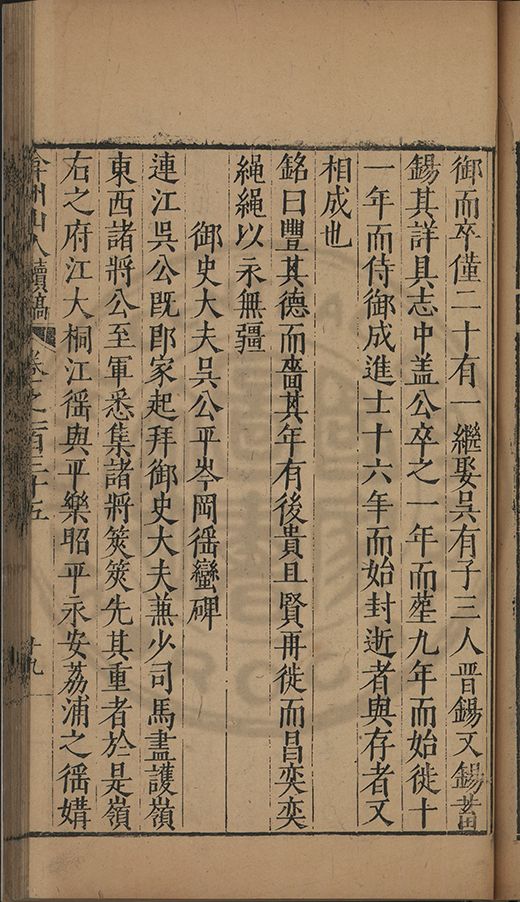 御而卒僅二十有一繼娶吳有子三人晋錫又錫蕃
錫其詳具志中盖公卒之一年而塟九年而始徙十
一年而侍御成進士十六年而始封逝者與存者又
相成也
銘曰豐其德而嗇其年有後貴且賢再徙而昌奕奕
繩繩以永無疆
御史大夫吳公平岑岡徭蠻碑
連江吳公旣卽家起拜御史大夫兼少司馬盡護嶺
東西諸將公至軍悉集諸將筴筴先其重者於是嶺
右之府江大桐江徭與平樂昭平永安荔浦之徭媾
弇州山人續稿 卷之一百三十五 十九